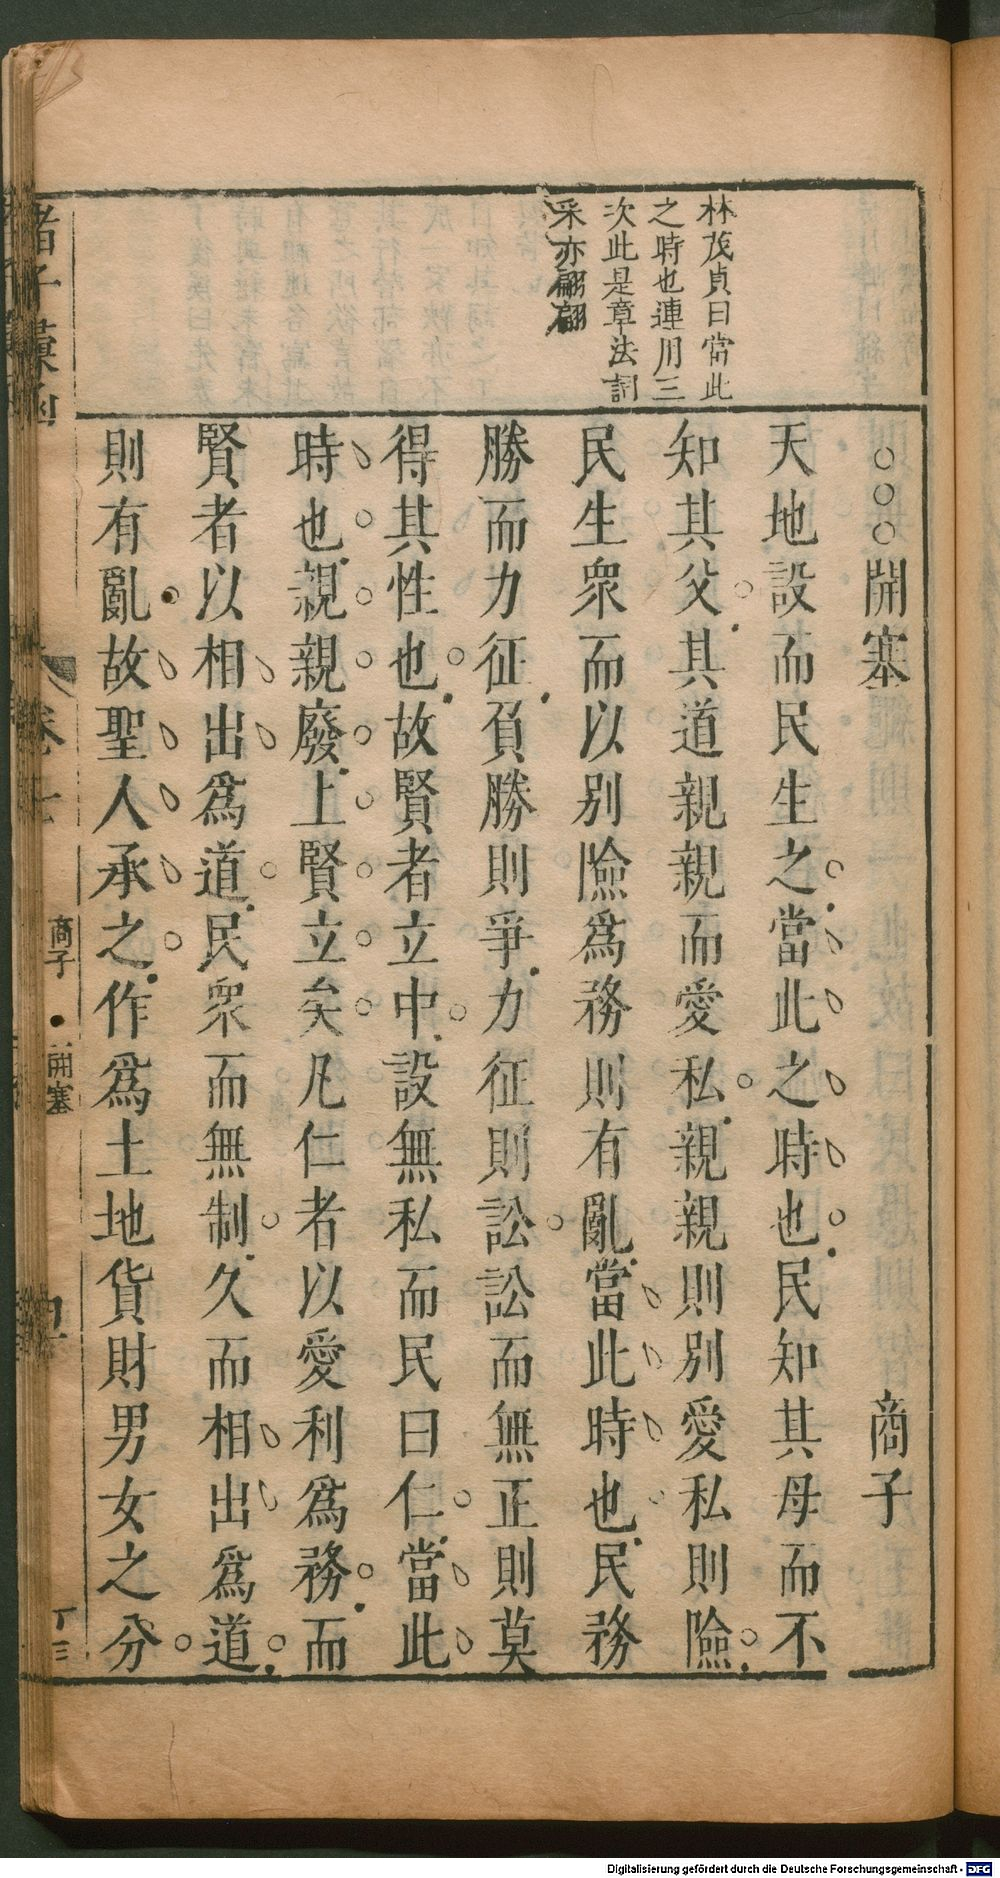 林茂貞曰當此
之時也連用三
次此是章法詞
采亦翩翩
○○○開塞 商子
天地設而民生之當此之時也民知其母而不
知其父其道親親而愛私親親則別愛私則險
民生衆而以别險爲務則有亂當此時也民務
勝而力征負勝則爭力征則訟訟而無正則莫
得其性也故賢者立中設無私而民曰仁當此
時也親親廢上賢立矣凡仁者以愛利爲務而
賢者以相出爲道民衆而無制久而相出爲道
則有亂故聖人承之作爲土地貨財男女之分
諸子彙函 卷 商子 開塞
Digitalisierung gefördert durch die Deutsche Forschungsgemeinschaft - DFG